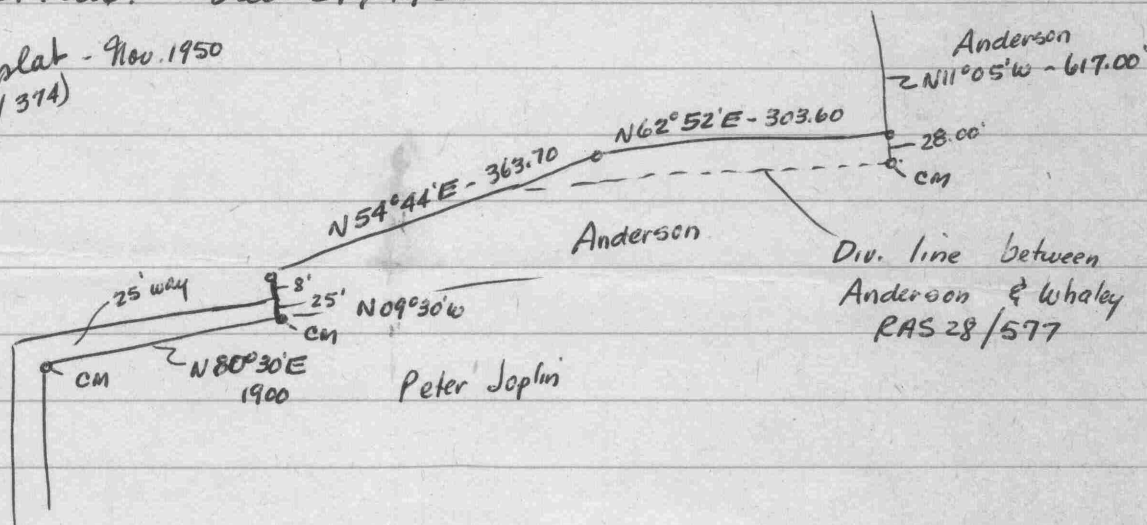 plat - Nov. 1950
374)
Anderson
N11°05'W - 617.00
N62°52'E - 303.60
28.00'
CM
N54°44'E - 363.70
Anderson
Div. line between
Anderson & Whaley
RAS 28/577
25' way
8'
25'
N09°30'W
CM
CM
N80°30'E
1900
Peter Joplin